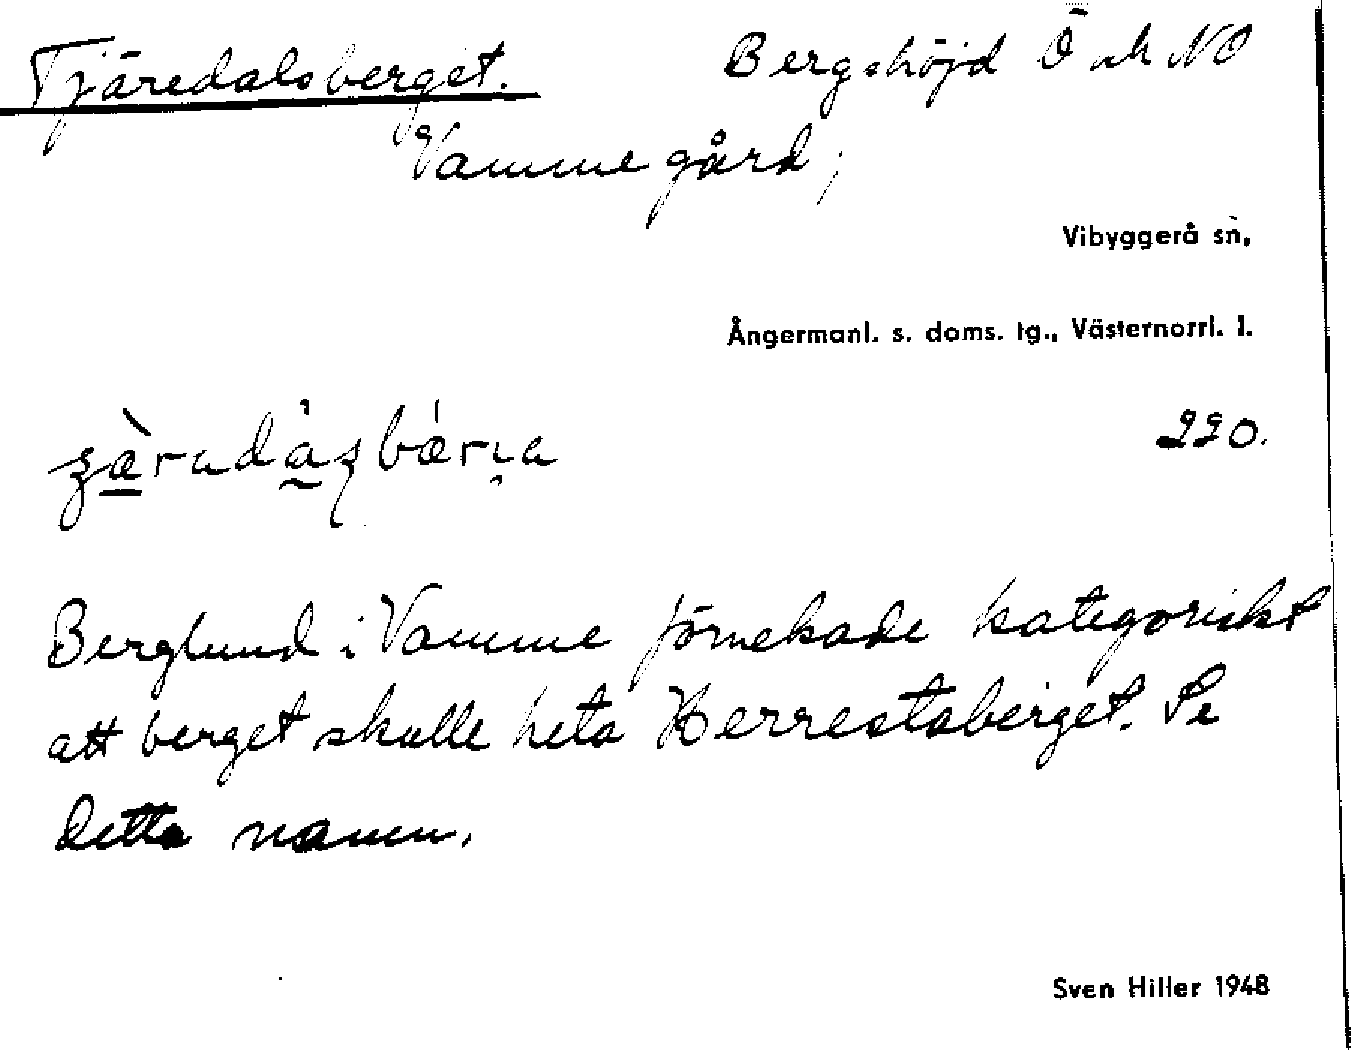 Tjäredalsberget. Bergshöjd Ö och NO
Vamme gård;
Vibyggerå sn,
Ångermanl. s. doms. tg., Västernorrl. l.
220.
Berglund i Vamme förnekade kategoriskt
att berget skulle heta Herrestaberget. Se
detta namn.
Sven Hiller 1948